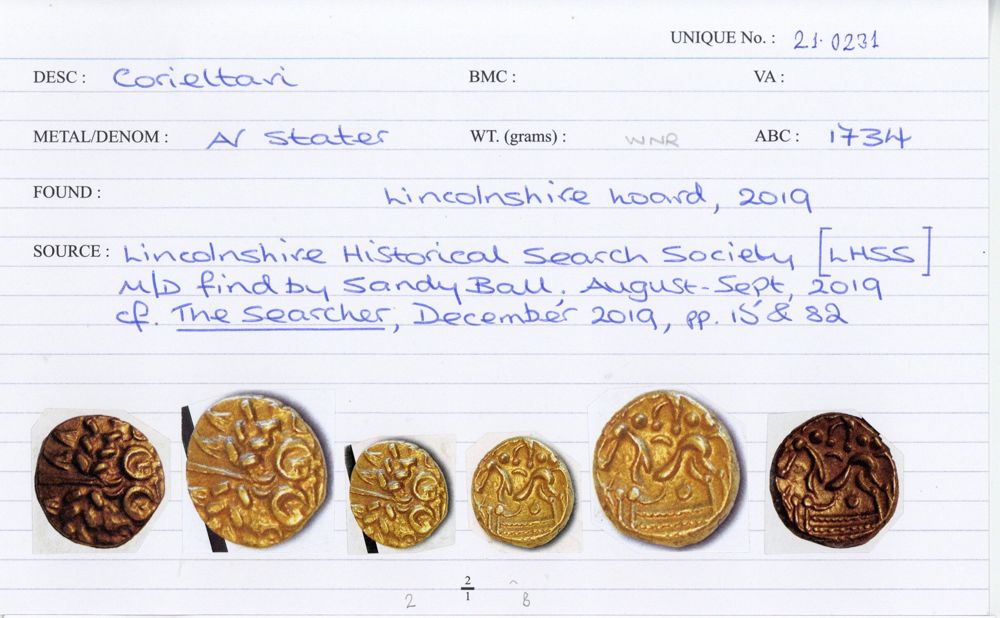 UNIQUE No. : 21.0231
DESC : Corieltavi BMC : VA :
METAL/DENOM : A/ Stater WT. (grams) : WNR ABC : 1734
FOUND : Lincolnshire hoard, 2019
SOURCE : Lincolnshire Historical Search Society [LHSS]
M/D find by Sandy Ball, August-Sept, 2019
cf. The Searcher, December 2019, pp. 15 & 82
2
1
2 8